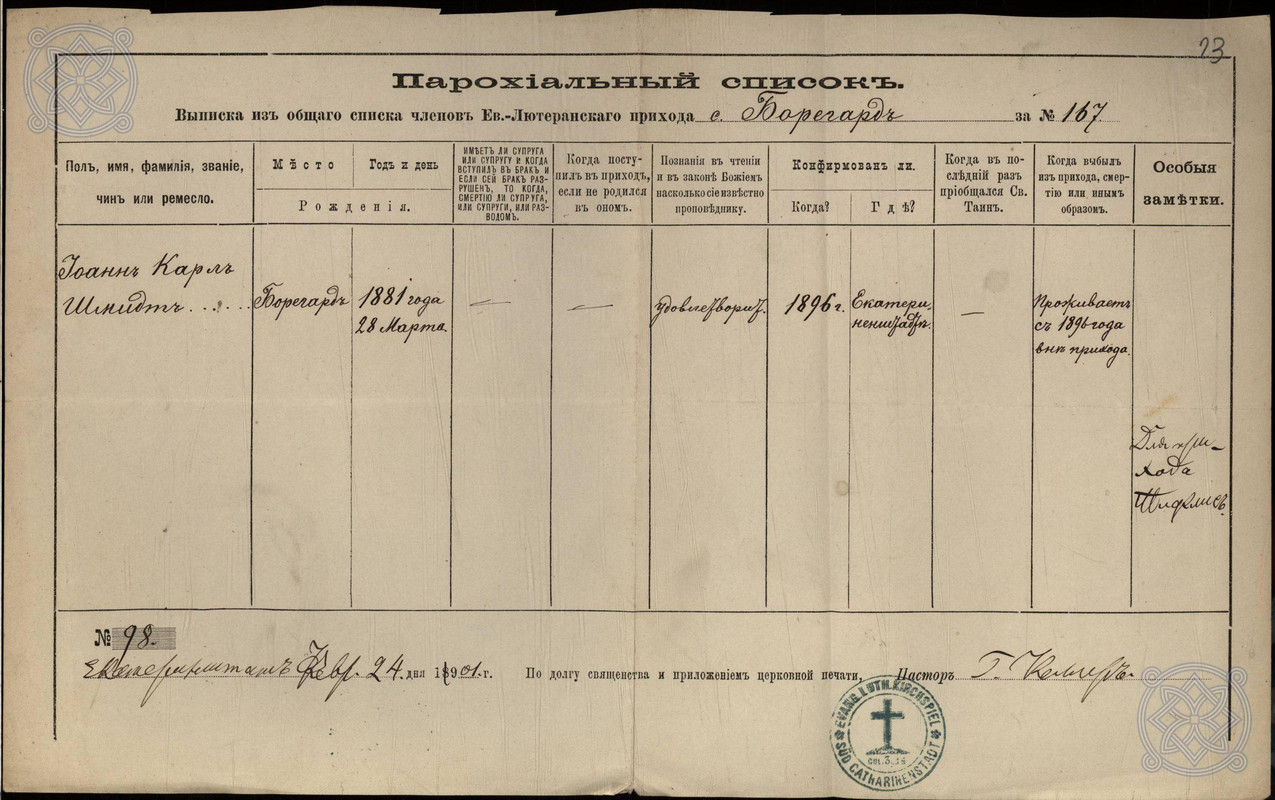 23
Парохіальный списокъ.
Выписка изъ общаго списка членовъ Ев.-Лютеранскаго прихода с. Борегардъ за № 167.
Полъ, имя, фамилія, званіе,
чинъ или ремесло.
Мѣсто
Годъ и день
Рожденія.
ИМѢЕТЪ ЛИ СУПРУГА
ИЛИ СУПРУГУ И КОГДА
ВСТУПИЛЪ ВЪ БРАКЪ И
ЕСЛИ СЕЙ БРАКЪ РАЗ-
РУШЕНЪ, ТО КОГДА,
СМЕРТІЮ ЛИ СУПРУГА,
ИЛИ СУПРУГИ, ИЛИ РАЗ-
ВОДОМЪ.
Когда посту-
пилъ въ приходъ,
если не родился
въ ономъ.
Познанія въ чтеніи
и въ законѣ Божіемъ
насколько сіе извѣстно
проповѣднику.
Конфирмованъ ли.
Когда?
Гдѣ?
Когда въ по-
слѣдній разъ
пріобщался Св.
Таинъ.
Когда выбылъ
изъ прихода, смер-
тію или инымъ
образомъ.
Особыя
замѣтки.
Іоаннъ Карлъ
Шмидтъ
Борегардъ
1881 года
28 Марта.
—
—
удовлетворит.
1896 г.
Екатери-
ненштадтъ.
—
Проживаетъ
съ 1896 года
внѣ прихода.
Для при-
хода
Тифлисъ.
№ 98.
Екатериненштатъ Февр. 24 дня 1901 г. По долгу священства и приложеніемъ церковной печати, Пасторъ Г.
EVANG. LUTH. KIRCHSPIEL
SÜD CATHARINENSTADT